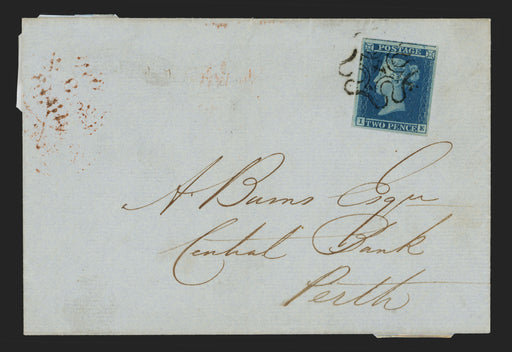 POSTAGE
I TWO PENCE K
A Burns Esqr
Central Bank
Perth